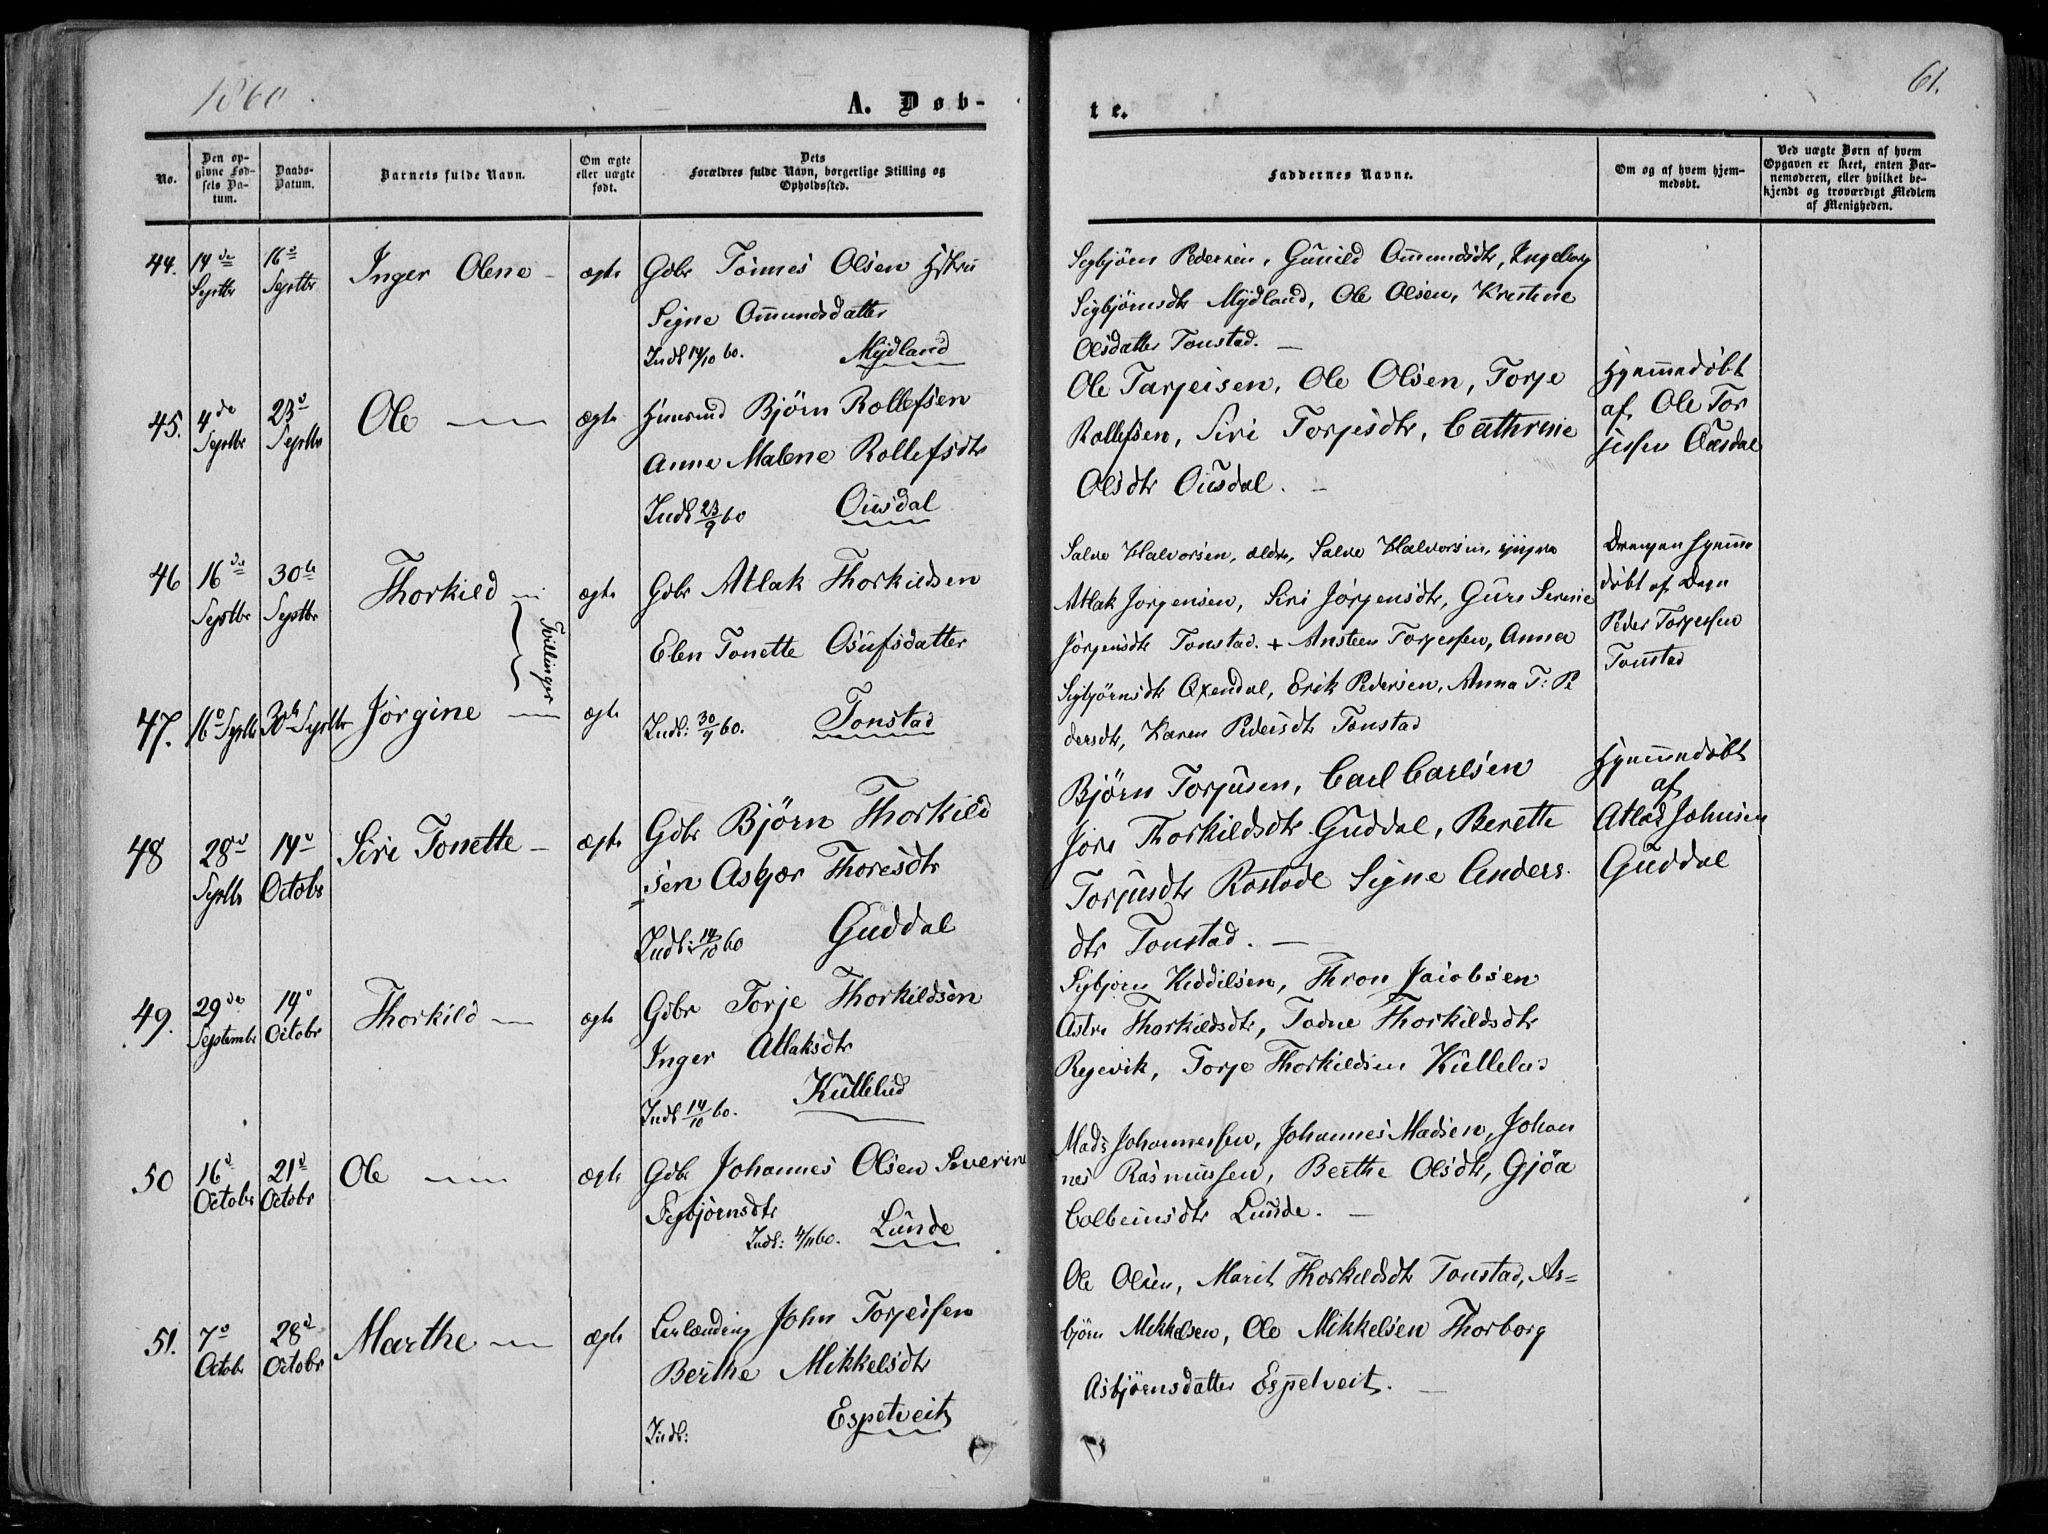 1860.
61.
A. Døb-
te.
No.
Den op-
givne Fød-
sels Da-
tum.
Daabs-
Datum.
Barnets fulde Navn.
Om ægte
eller uægte
født.
Dets
Forældres fulde Navn, borgerlige Stilling og
Opholdssted.
Faddernes Navne.
Om og af hvem hjem-
medøbt.
Ved uægte Børn af hvem
Opgaven er skeet, enten Bar-
nemoderen, eller hvilket be-
kjendt og troværdigt Medlem
af Menigheden.
44.
14de
Septbr
16
Septbr
Inger Olene —
ægte
Gdbr Tönnes Olsen Hstru
Signe Omundsdatter
Indb 14/10 60. Mydland
Sigbjörn Pedersen, Gunild Omundsdtr, Ingeborg
Sigbjörnsdtr Mydland, Ole Olsen, Kristine
Olsdatter Tonstad. —
45.
4de
Septbr
23
Septbr
Ole —
ægte
Huusmd Björn Rollefsen
Anne Malene Rollefsdtr
Indb 23/9 60 Ousdal
Ole Tarjeisen, Ole Olsen, Torje
Rollefsen, Siri Torjesdtr, Cathrine
Olsdtr Ousdal. —
Hjemmedöbt
af Ole Tor
jesen Ousdal
46
16de
Septbr
30te
Septbr
Thorkild —
Tvillinger
ægte
Gdbr Atlak Thorkildsen
Elen Tonette Osufsdatter
Salve Halvorsen, ældre, Salve Halvorsen, yngre
Atlak Jorgensen, Siri Jörgensdtr, Guro Serine
Jörgensdtr Tonstad. + Ansteen Torjessen, Anna
Sigbjörnsdtr Oxendal, Erik Pedersen, Anna T: Pe
dersdtr, Karen Pedersdtr Tonstad
Drengen hjemme
döbt af Dagn
Peder Torjessen
Tonstad
47.
16 Septbr
30te Septbr
Jörgine —
ægte
Indb: 30/9 60. Tonstad
48
28
Septbr
14
Octobr
Siri Tonette —
ægte
Gdbr Björn Thorkild
sen Asbjær Thoresdtr
Indb: 14/10 60 Guddal
Björn Torjusen, Carl Carlsen
Jore Thorkildsdtr Guddal, Berette
Torjusdtr Rostøl Signe Anders
dtr Tonstad. —
Hjemmedöbt
af
Atlak Johnsen
Guddal
49.
29de
Septembr
14
Octobr
Thorkild —
ægte
Gdbr Torje Thorkildsen
Inger Atlaksdtr
Indb 14/10 60. Kullelid
Sigbjorn Kiddilsen, Thron Jacobsen
Astri Thorkildsdtr, Todne Thorkildsdtr
Regevik, Torje Thorkildsen Kullelid
50
16
Octobr
21
Octobr
Ole —
ægte
Gdbr Johannes Olsen Severine
Sigbjörnsdtr
Indb: 4/11 60. Lunde
Mads Johannessen, Johannes Madsen, Johan
nes Rasmussen, Berthe Olsdtr, Gjöa
Colbeinsdtr Lunde. —
51.
7
Octobr
28
Octobr
Marthe —
ægte
Leilænding John Torjessen
Berthe Mikkelsdtr
Indb: Espetveit
Ole Olsen, Marit Thorkildsdtr Tonstad, As=
björn Mikkelsen, Ole Mikkelsen Thorborg
Asbjörnsdatter Espetveit. —